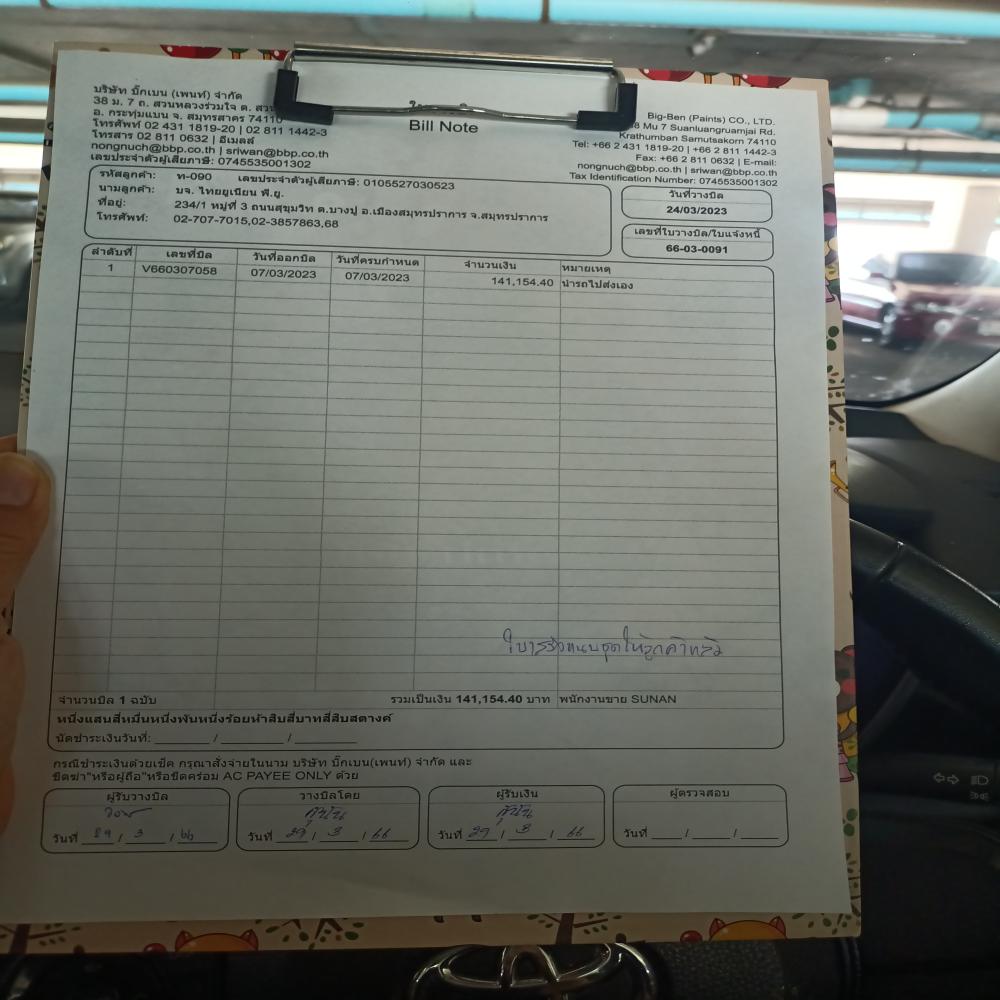 บริษัท บิ๊กเบน (เพนท์) จำกัด
38 ม. 7 ถ. สวนหลวงร่วมใจ ต.
อ. กระทุ่มแบน จ. สมุทรสาคร 74110
โทรศัพท์ 02 431 1819-20 | 02 811 1442-3
โทรสาร 02 811 0632 | อีเมลล์
nongnuch@bbp.co.th | sriwan@bbp.co.th
เลขประจำตัวผู้เสียภาษี: 0745535001302
Bill Note
Big-Ben (Paints) CO., LTD.
Mu 7 Suanluangruamjai Rd.
Krathumban Samutsakorn 74110
Tel: +66 2 431 1819-20 | +66 2 811 1442-3
Fax: +66 2 811 0632 | E-mail:
nongnuch@bbp.co.th | sriwan@bbp.co.th
Tax Identification Number: 0745535001302
รหัสลูกค้า: ท-090 เลขประจำตัวผู้เสียภาษี: 0105527030523
นามลูกค้า: บจ. ไทยยูเนียน พี.ยู.
ที่อยู่: 234/1 หมู่ที่ 3 ถนนสุขุมวิท ต.บางปู อ.เมืองสมุทรปราการ จ.สมุทรปราการ
โทรศัพท์: 02-707-7015,02-3857863,68
วันที่วางบิล
24/03/2023
เลขที่ใบวางบิล/ใบแจ้งหนี้
66-03-0091
ลำดับที่ เลขที่บิล วันที่ออกบิล วันที่ครบกำหนด จำนวนเงิน หมายเหตุ
1 V660307058 07/03/2023 07/03/2023 141,154.40 นำรถไปส่งเอง
จำนวนบิล 1 ฉบับ รวมเป็นเงิน 141,154.40 บาท พนักงานขาย SUNAN
หนึ่งแสนสี่หมื่นหนึ่งพันหนึ่งร้อยห้าสิบสี่บาทสี่สิบสตางค์
นัดชำระเงินวันที่: ______ / ______ / ______
กรณีชำระเงินด้วยเช็ค กรุณาสั่งจ่ายในนาม บริษัท บิ๊กเบน(เพนท์) จำกัด และ
ขีดฆ่า"หรือผู้ถือ"หรือขีดคร่อม AC PAYEE ONLY ด้วย
ผู้รับวางบิล วางบิลโดย ผู้รับเงิน ผู้ตรวจสอบ
สุนัน สุนัน
วันที่ 29 / 3 / 66 วันที่ 29 / 3 / 66 วันที่ 29 / 3 / 66 วันที่ ___ / ___ / ___